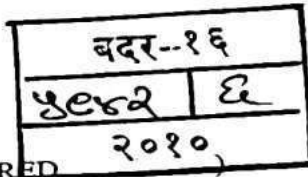 बदर--१६
५८४२ | ६
२०१०
RED )